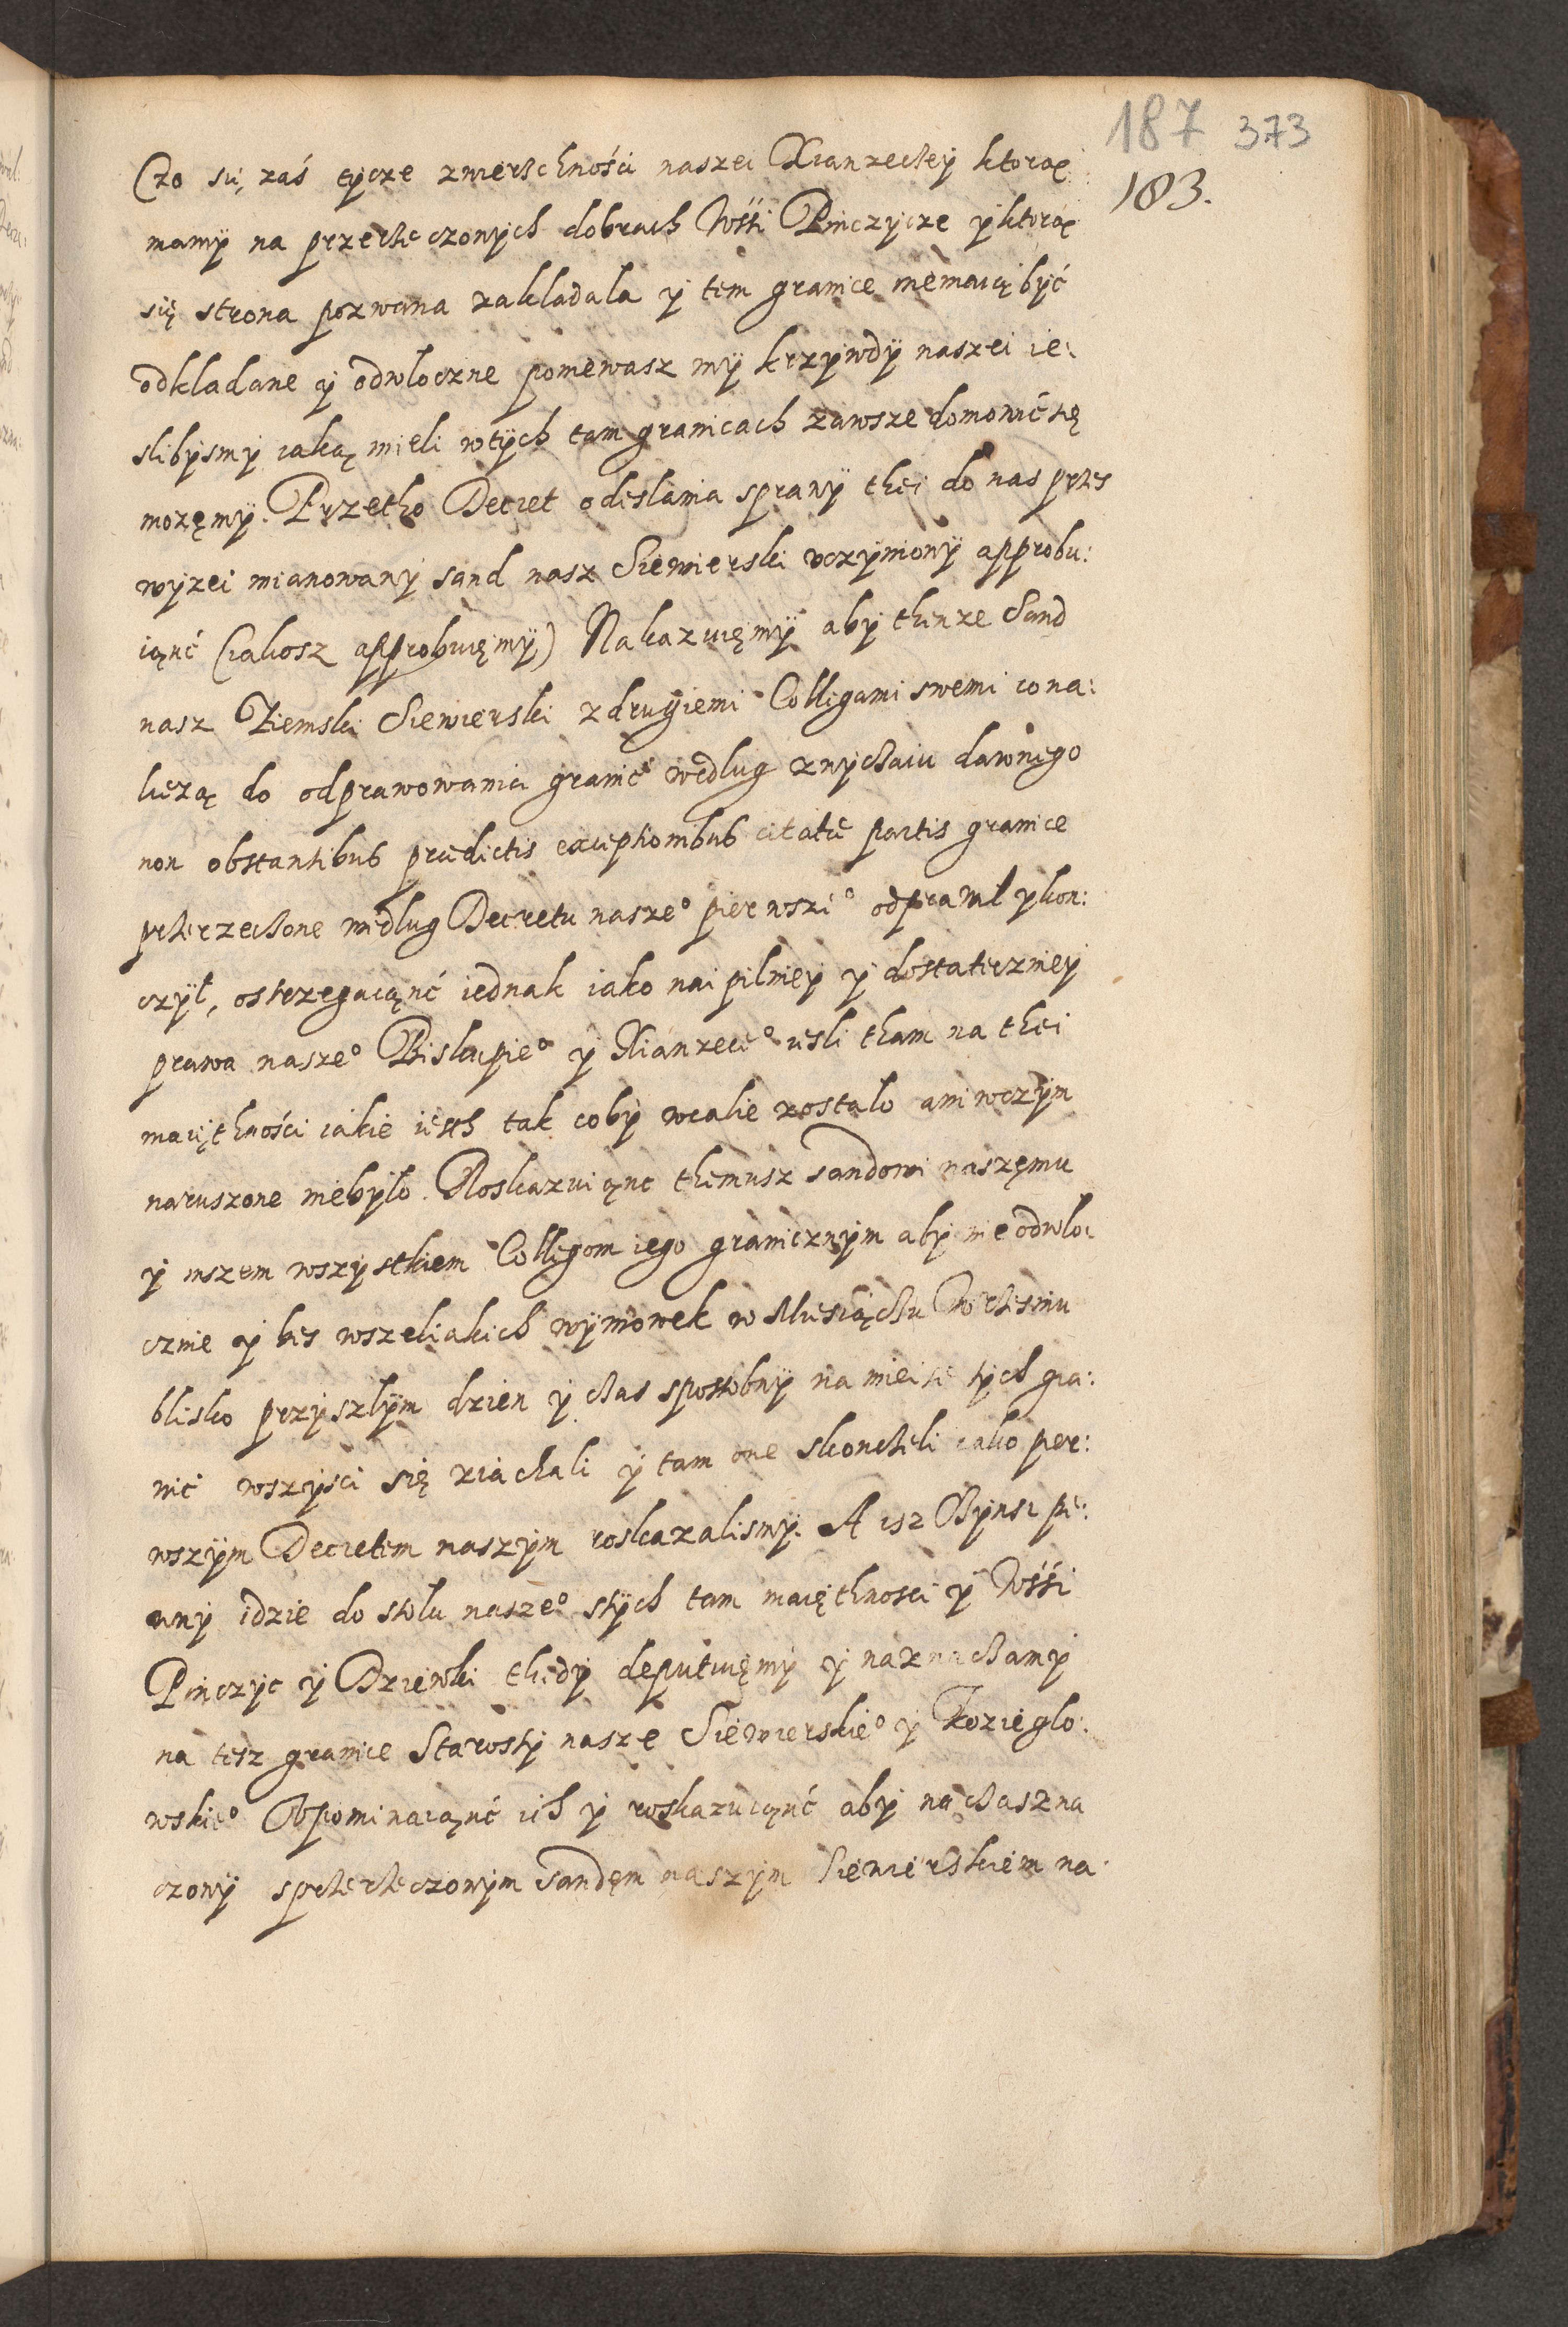 187 373
183.
Czo się zaś tycze zwierzchności naszei Xianzeckey ktorą
mamÿ na przerzeczonych dobrach Wśśi Pinczycze y ktorą
się strona pozwana zakladala y tem granice niemaią być
odkladane y odwloczne poniewasz mÿ krzywdÿ naszei ie:
slibysmy iaką mieli wtÿch tam granicach zawsze domowić się
możęmÿ. Przetho Decret odeslania sprawÿ thei do nas przes
wyżei mianowany sand nasz Siewierski uczynionÿ approbu:
iąnć (iakosz approbuięmÿ) Nakazuięmÿ aby thenże Sand
nasz Ziemski Siewierski z drugiemi Collegami swemi co na:
leżą do odprawowania granić wedlug zwyczaiu dawnego
non obstantibus praedictis exceptionibus citatae partis granice
przerzeczone wedlug Decretu nasze° pierwsze° odprawil y kon:
czÿl, ostrzegaiąnć iednak iako nai pilniey y dostateczniey
prawa nasze° Biskupie° y Xianzece° iesli tham na thei
maięthności iakie iesth tak coby wcalie zostalo ani wczym
naruszone niebylo. Roskazuiąnc themusz sandowi naszęmu
y inszem wszystkiem Collegom iego granicznym aby nie odwlo:
cznie y bes wszeliakich wymowek w Miesiączu Wrzesniu
blisko przyszlÿm dzien y czas sposobnÿ na mieisce tych gra:
nic wszysci się ziachali y tam one skonczeli iako pier:
wszÿm Decretem naszym roskazalismÿ. A isz Czynsz pe:
wny idzie do stolu nasze° stÿch tam maięthnosci y Wśśi
Pinczyc y Dziewki thedy deputuięmy y naznaczamy
na tesz granice Starosty nasze Siewierskie° y Kozieglo:
wskie° Upominaiąnć ich y roskazuiąnć aby na czas zna
czonÿ sprzerzeczonym Sandęm naszym Siewierskiem na